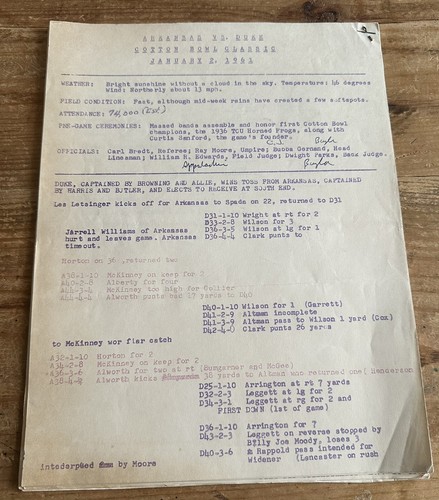 ARKANSAS VS. DUKE
COTTON BOWL CLASSIC
JANUARY 2, 1961
WEATHER: Bright sunshine without a cloud in the sky. Temperature: 46 degrees
Wind: Northerly about 13 mph.
FIELD CONDITION: Fast, although mid-week rains have created a few softspots.
ATTENDANCE: 74,000 (Est)
PRE-GAME CEREMONIES: Massed bands assemble and honor first Cotton Bowl
Champions, the 1936 TCU Horned Frogs, along with
Curtis Sanford, the game's founder.
OFFICIALS: Carl Bredt, Referee; Ray Moore, Umpire; Bubba Gernand, Head
Linesman; William H. Edwards, Field Judge; Dwight Parks, Back Judge.
DUKE, CAPTAINED BY BROWNING AND ALLIE, WINS TOSS FROM ARKANSAS, CAPTAINED
BY HARRIS AND BUTLER, AND ELECTS TO RECEIVE AT SOUTH END.
Les Letsinger kicks off for Arkansas to Spada on 22, returned to D31
D31-1-10 Wright at rt for 2
D33-2-8 Wilson for 3
Jarrell Williams of Arkansas D36-3-5 Wilson at lg for 1
hurt and leaves game. Arkansas D36-4-4 Clark punts to
timeout.
Horton on 36, returned two
A38-1-10 McKinney on keep for 2
A40-2-8 Alberty for four
A44-3-4 McKinney too high for Collier
A44-4-4 Alworth punts had 17 yards to D40
D40-1-10 Wilson for 1 (Garrett)
D41-2-9 Altman incomplete
D41-3-9 Altman pass to Wilson 1 yard (Cox)
D42-4-8 Clark punts 26 yards
to McKinney wor fier catch
A32-1-10 Horton for 2
A34-2-8 McKinney on keep for 2
A36-3-6 Alworth for two at rt (Bumgarner and McGee)
A38-4-4 Alworth kicks 38 yards to Altman who returned one (Henderson
D25-1-10 Arrington at rt 7 yards
D32-2-3 Leggett at lg for 2
D34-3-1 Leggett at rg for 2 and
FIRST DOWN (1st of game)
D36-1-10 Arrington for 7
D43-2-3 Leggett on reverse stopped by
Billy Joe Moody, loses 3
D40-3-6 Rappold pass intended for
Widener (Lancaster on rush
by Moore